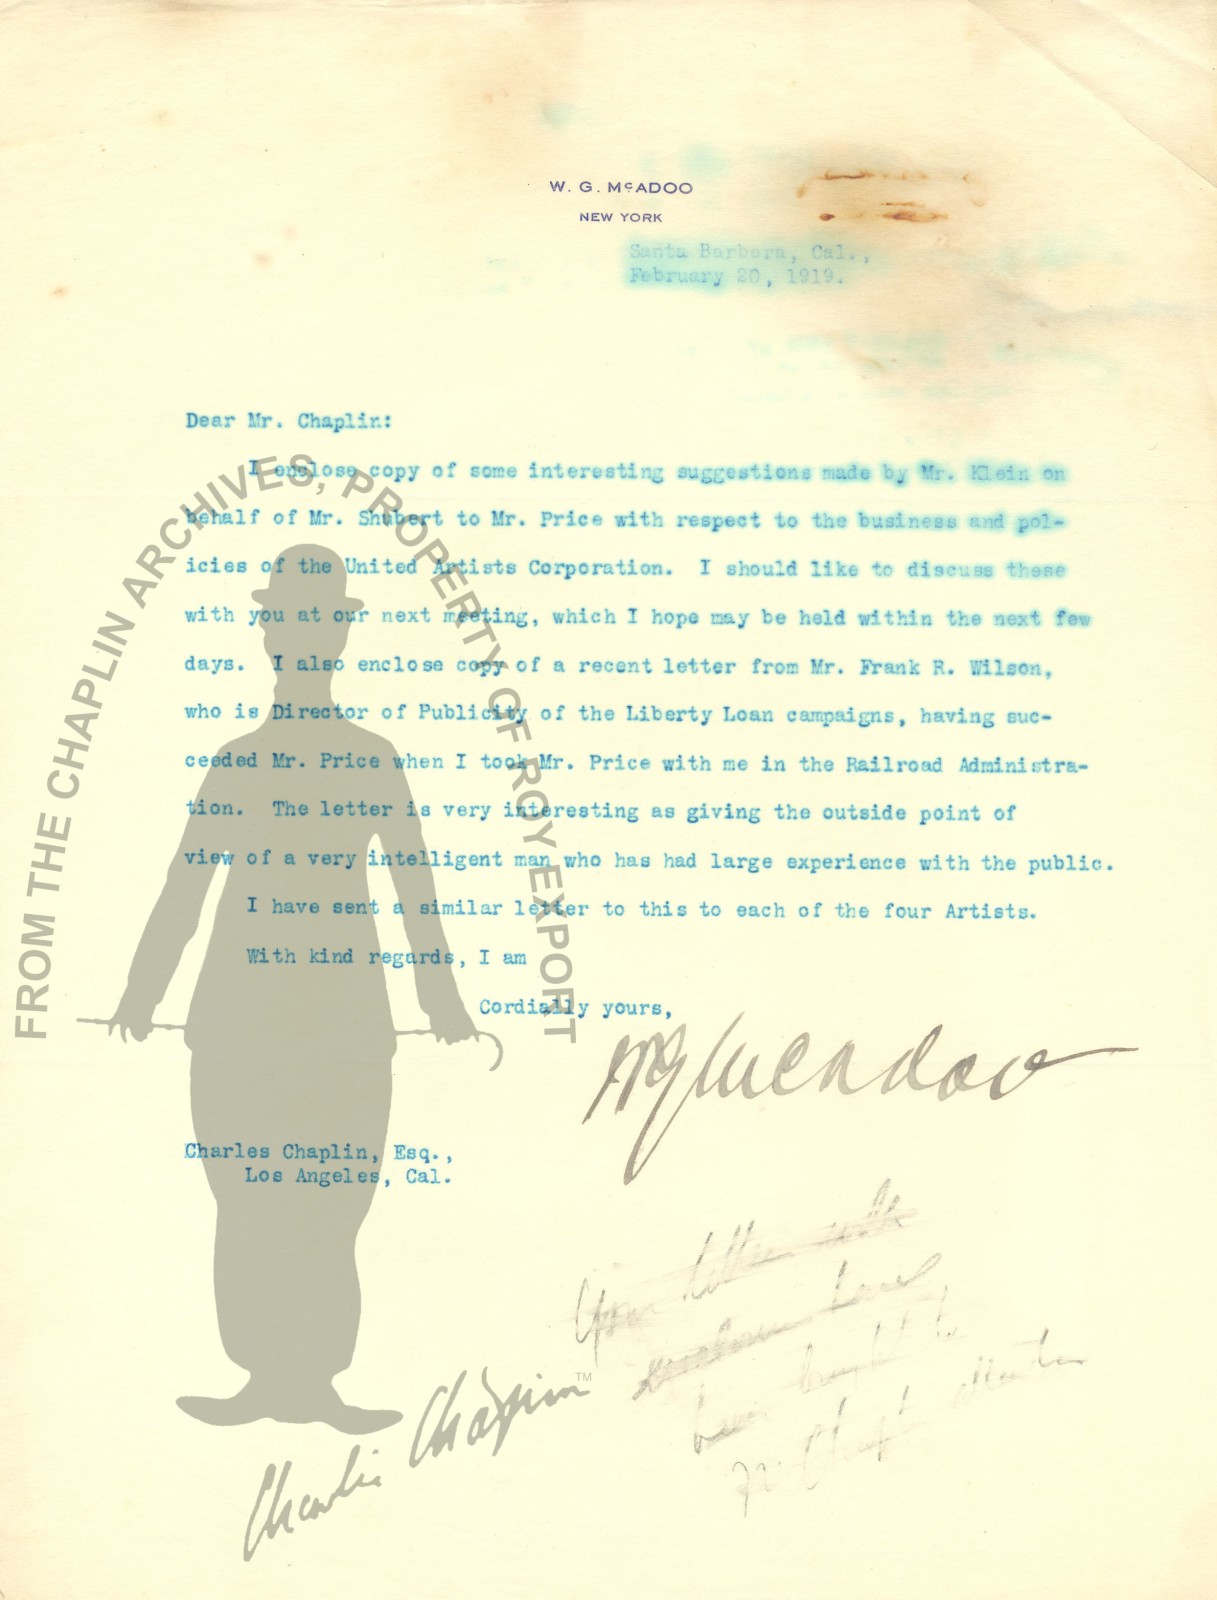 W. G. McADOO
NEW YORK
Santa Barbara, Cal.,
February 20, 1919.
Dear Mr. Chaplin:
I enclose copy of some interesting suggestions made by Mr. Klein on
behalf of Mr. Shubert to Mr. Price with respect to the business and pol-
icies of the United Artists Corporation. I should like to discuss these
with you at our next meeting, which I hope may be held within the next few
days. I also enclose copy of a recent letter from Mr. Frank R. Wilson,
who is Director of Publicity of the Liberty Loan campaigns, having suc-
ceeded Mr. Price when I took Mr. Price with me in the Railroad Administra-
tion. The letter is very interesting as giving the outside point of
view of a very intelligent man who has had large experience with the public.
I have sent a similar letter to this to each of the four Artists.
With kind regards, I am
Cordially yours,
WG McAdoo
Charles Chaplin, Esq.,
Los Angeles, Cal.
Your letter with
have
brought to
Mr Chaplin attention
FROM THE CHAPLIN ARCHIVES, PROPERTY OF ROY EXPORT
Charlie Chaplin™